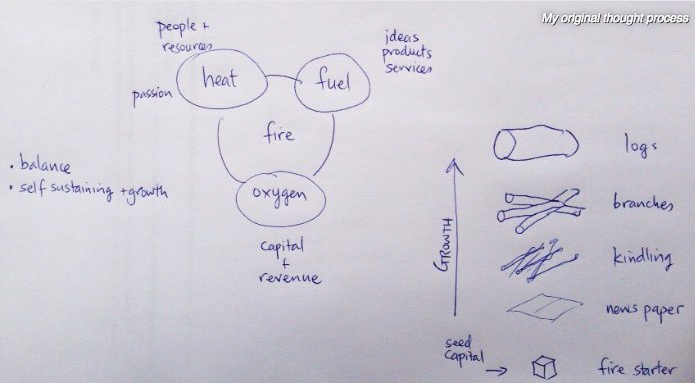 My original thought process
people +
resources
ideas
products
services
heat
fuel
passion
fire
• balance
• self sustaining + growth
oxygen
capital
+
revenue
GROWTH
logs
branches
kindling
news paper
seed
capital
fire starter